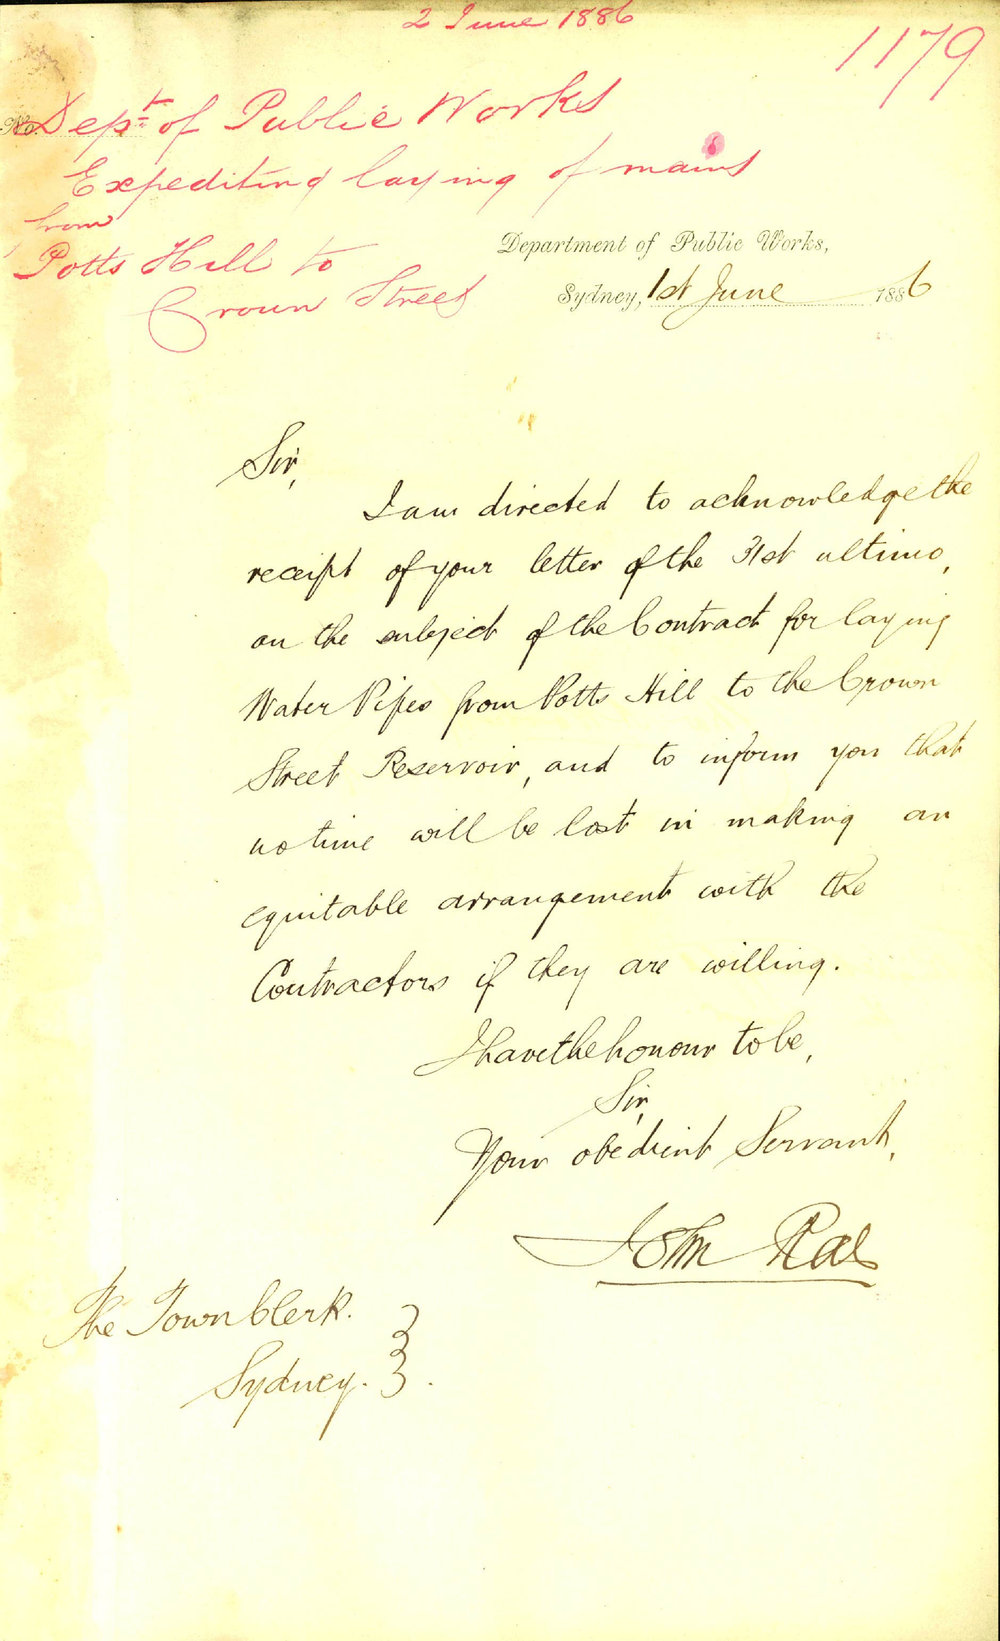 2 June 1886
1179
No. Dept. of Public Works
Expediting laying of mains
from
Potts Hill to
Crown Street
Department of Public Works,
Sydney, 1st June 1886
Sir,
I am directed to acknowledge the
receipt of your letter of the 31st ultimo,
on the subject of the Contract for laying
Water Pipes from Potts Hill to the Crown
Street Reservoir, and to inform you that
no time will be lost in making an
equitable arrangement with the
Contractors if they are willing.
I have the honour to be,
Sir,
Your obedient Servant,
John Rae
The Town Clerk.
Sydney.